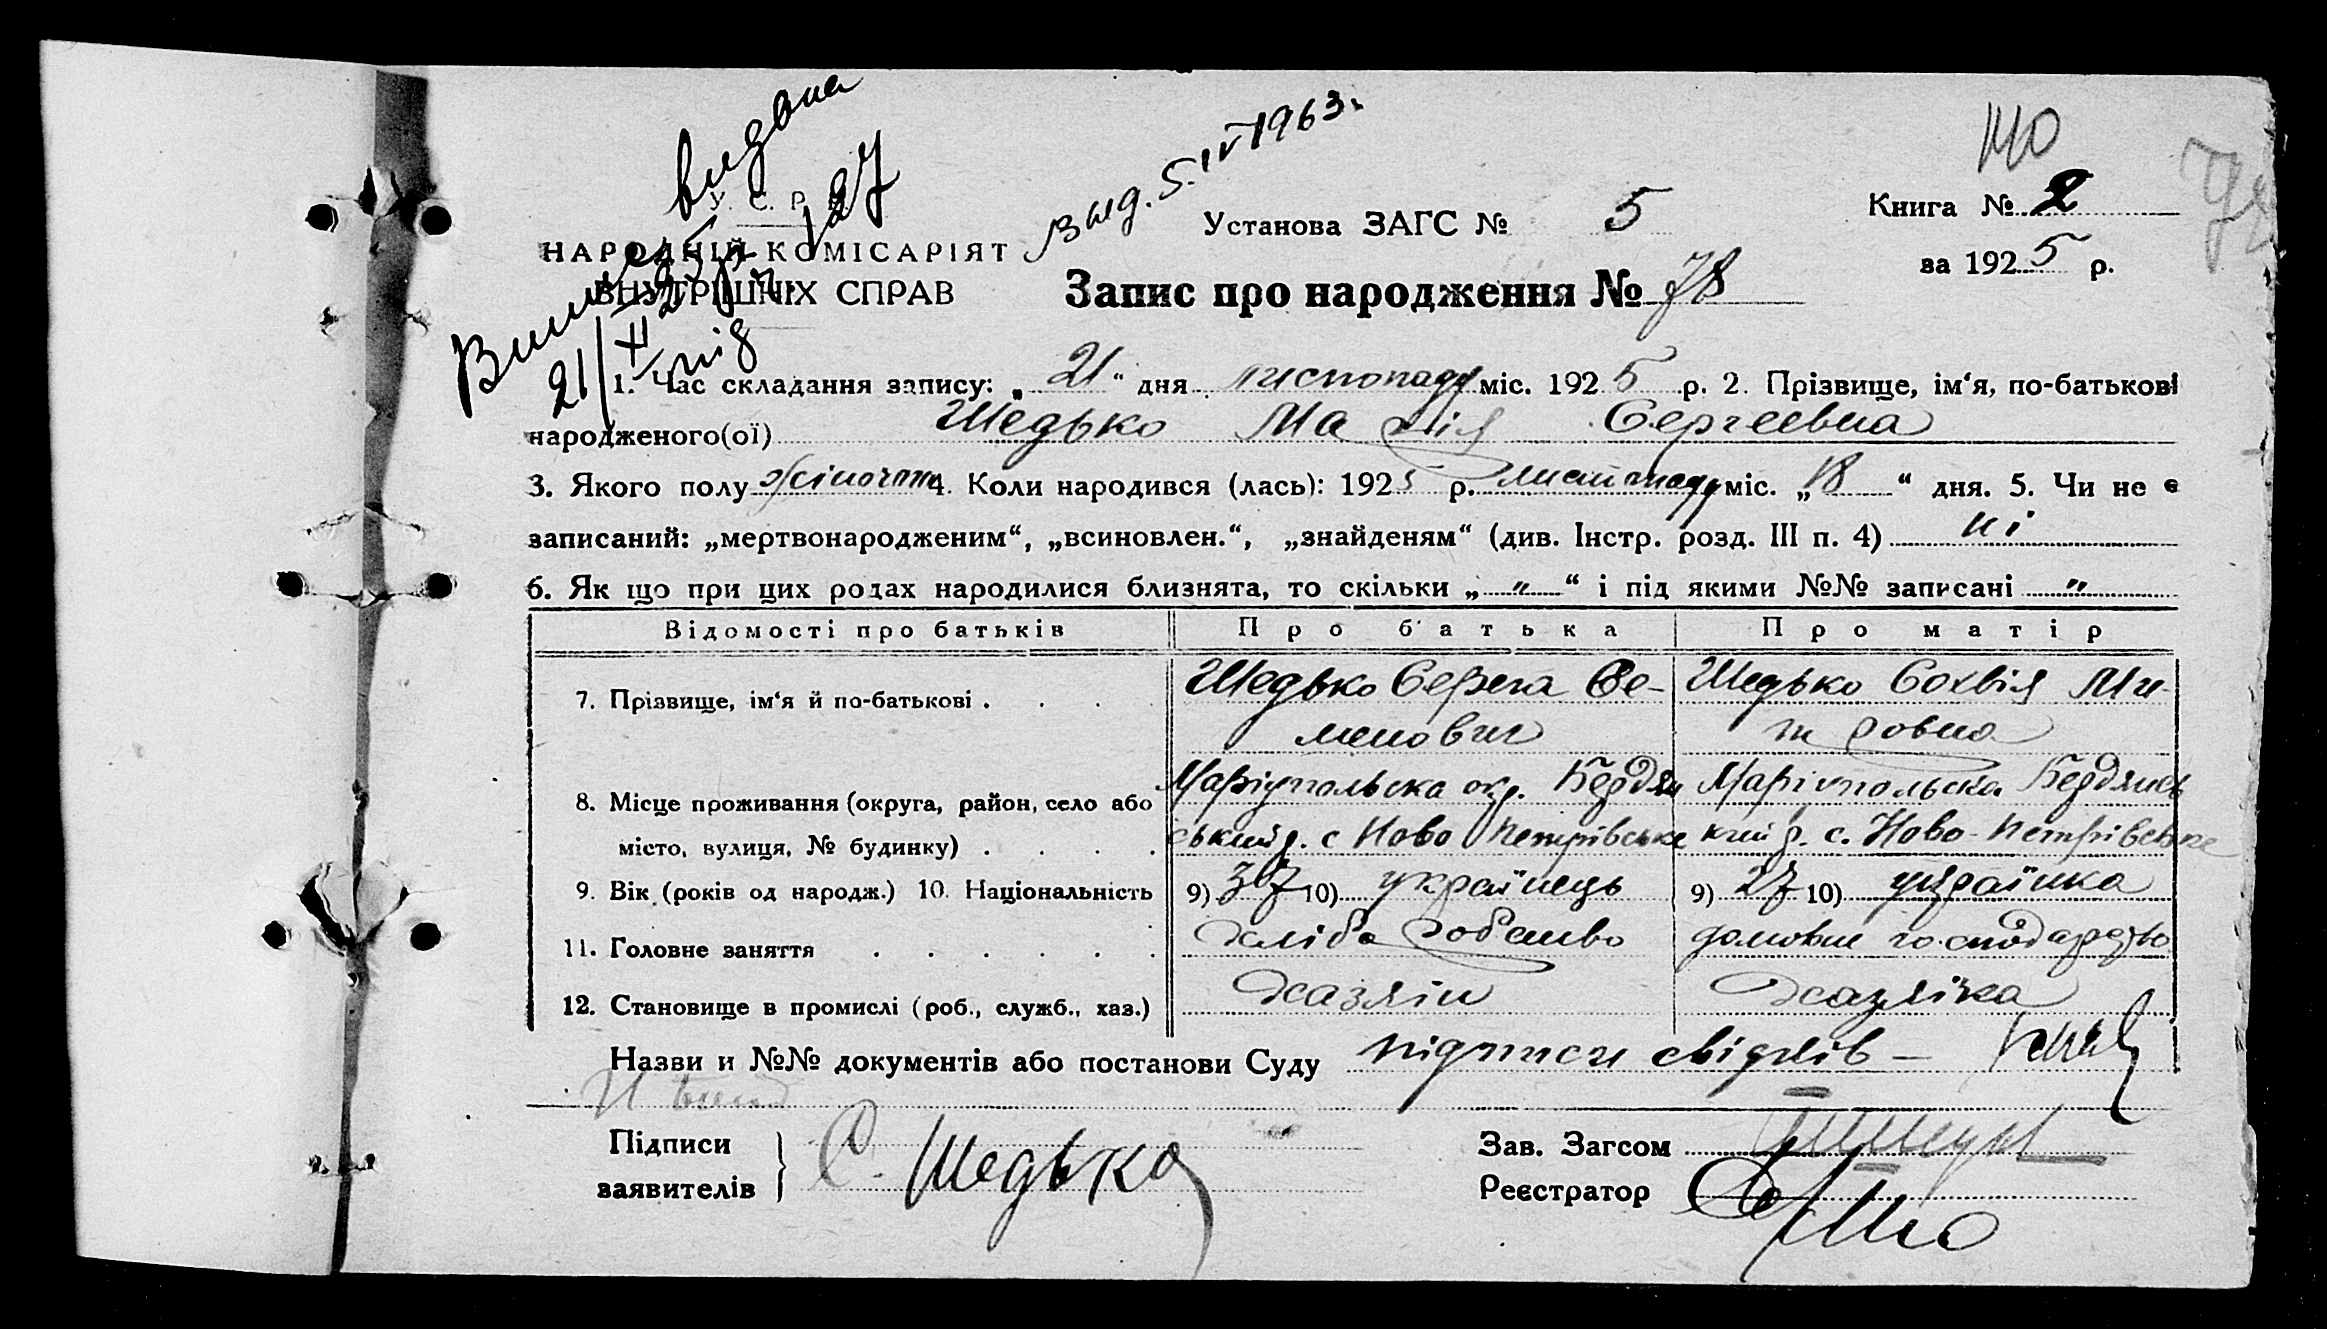 видана
Вид. 5.IV 1963г
140
У. С. Р. Р.
НАРОДНІЙ КОМІСАРІЯТ
ВНУТРІШНІХ СПРАВ
Установа ЗАГС № 5
Книга № 2
за 1925 р.
Запис про народження № 78
21/XI
під
1. Час складання запису: „21“ дня листопаду міс. 1925 р. 2. Прізвище, ім‘я, по-батькові
народженого(ої) Шедько Марія Сергеевна
3. Якого полу жіночого 4. Коли народився (лась): 1925 р. листопаду міс. „18“ дня. 5. Чи не є
записаний: „мертвонародженим“, „всиновлен.“, „знайденям“ (див. Інстр. розд. III п. 4) ні
6. Як що при цих родах народилися близнята, то скільки „ " “ і під якими №№ записані "
Відомості про батьків Про батька Про матір
7. Прізвище, ім‘я й по-батькові . . . Шедько Серега Се- Шедько Сохвія Ми-
менович тровна
8. Місце проживання (округа, район, село або Маріупольска окр. Бердян Маріупольска Бердянсь
місто, вулиця, № будинку) . . . . ський р. с Ново Петрівське кий р. с. Ново-Петрівське
9. Вік (років од народж.) 10. Національність 9) 37 10) українець 9) 27 10) українка
11. Головне заняття . . . . . . хліборобство домовне господарство
12. Становище в промислі (роб., служб., хаз.) хазяін хазяїка
Назви и №№ документів або постанови Суду підписи свідків —
Підписи
заявителів } С. Шедько
Зав. Загсом
Реєстратор